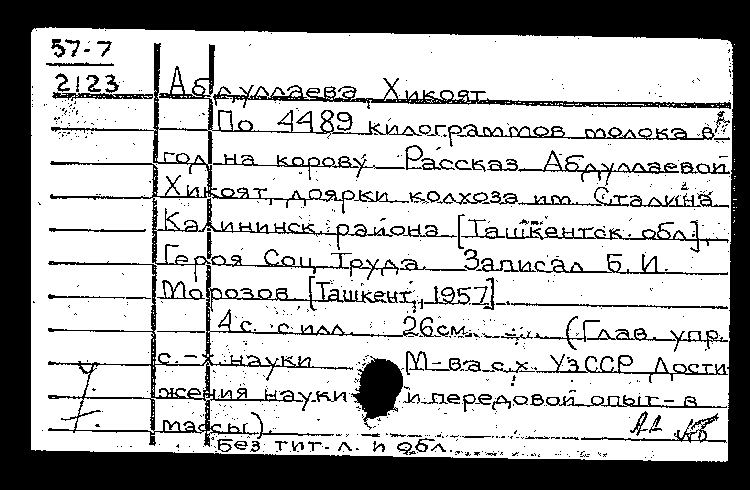 57-7
2123
Абдуллаева, Хикоят
По 4489 килограммов молока в
год на корову. Рассказ Абдуллаевой
Хикоят, доярки колхоза им. Сталина
Калининск. района [Ташкентск. обл.],
Героя Соц. Труда. Записал Б. И.
Морозов. [Ташкент, 1957].
4 с. с илл. 26 см. (Глав. упр.
с.-х. науки М-ва с.х. УзССР. Дости
жения науки и передовой опыт - в
массы).
Без тит. л. и обл.